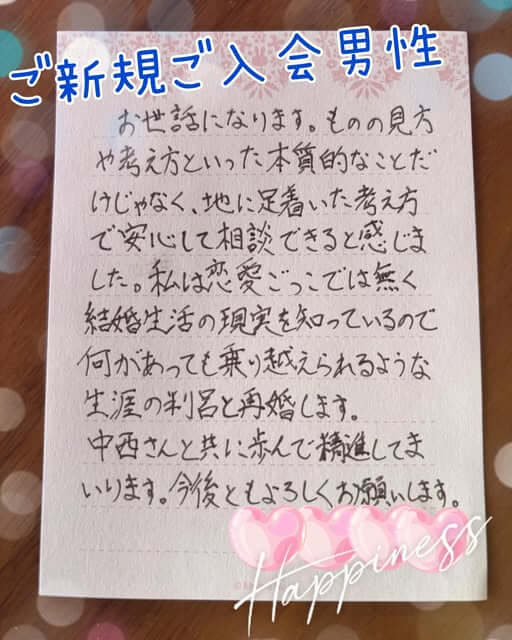 ご新規ご入会男性
お世話になります。ものの見方
や考え方といった本質的なことだ
けじゃなく、地に足着いた考え方
で安心して相談できると感じま
した。私は恋愛ごっこでは無く
結婚生活の現実を知っているので
何があっても乗り越えられるような
生涯の利呂と再婚します。
中西さんと共に歩んで精進してま
いります。今後ともよろしくお願いします。
Happiness